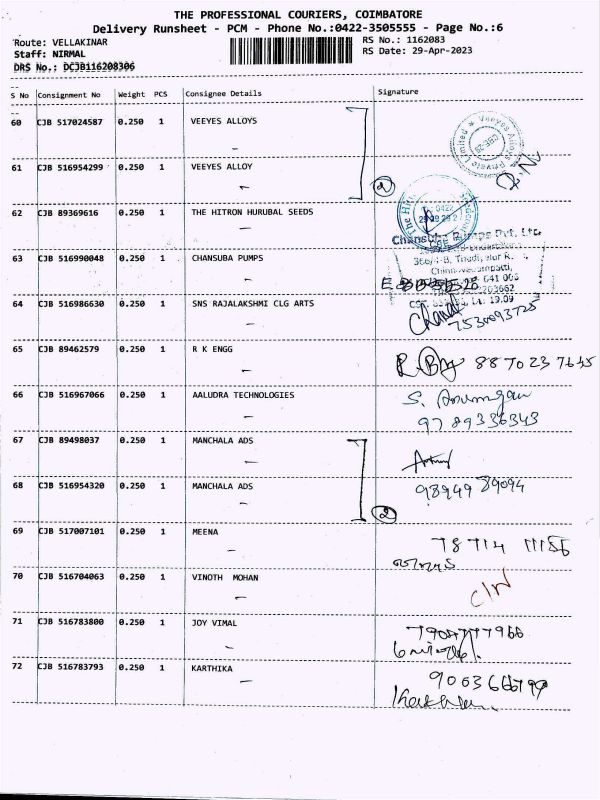 THE PROFESSIONAL COURIERS, COIMBATORE
Delivery Runsheet - PCM - Phone No.:0422-3505555 - Page No.:6
Route: VELLAKINAR
RS No.: 1162083
Staff: NIRMAL
RS Date: 29-Apr-2023
DRS No.: DCJB116208306
S No Consignment No Weight PCS Consignee Details Signature
60 CJB 517024587 0.250 1 VEEYES ALLOYS
61 CJB 516954299 0.250 1 VEEYES ALLOY
2
62 CJB 89369616 0.250 1 THE HITRON HURUBAL SEEDS
Chansuba Pumps Pvt. Ltd.
63 CJB 516990048 0.250 1 CHANSUBA PUMPS
64 CJB 516986630 0.250 1 SNS RAJALAKSHMI CLG ARTS
7530093725
65 CJB 89462579 0.250 1 R K ENGG
8870237645
66 CJB 516967066 0.250 1 AALUDRA TECHNOLOGIES
S. Arumugam
9789336343
67 CJB 89498037 0.250 1 MANCHALA ADS
68 CJB 516954320 0.250 1 MANCHALA ADS
98949 89094
2
69 CJB 517007101 0.250 1 MEENA
78714 11156
70 CJB 516704063 0.250 1 VINOTH MOHAN
71 CJB 516783800 0.250 1 JOY VIMAL
72 CJB 516783793 0.250 1 KARTHIKA